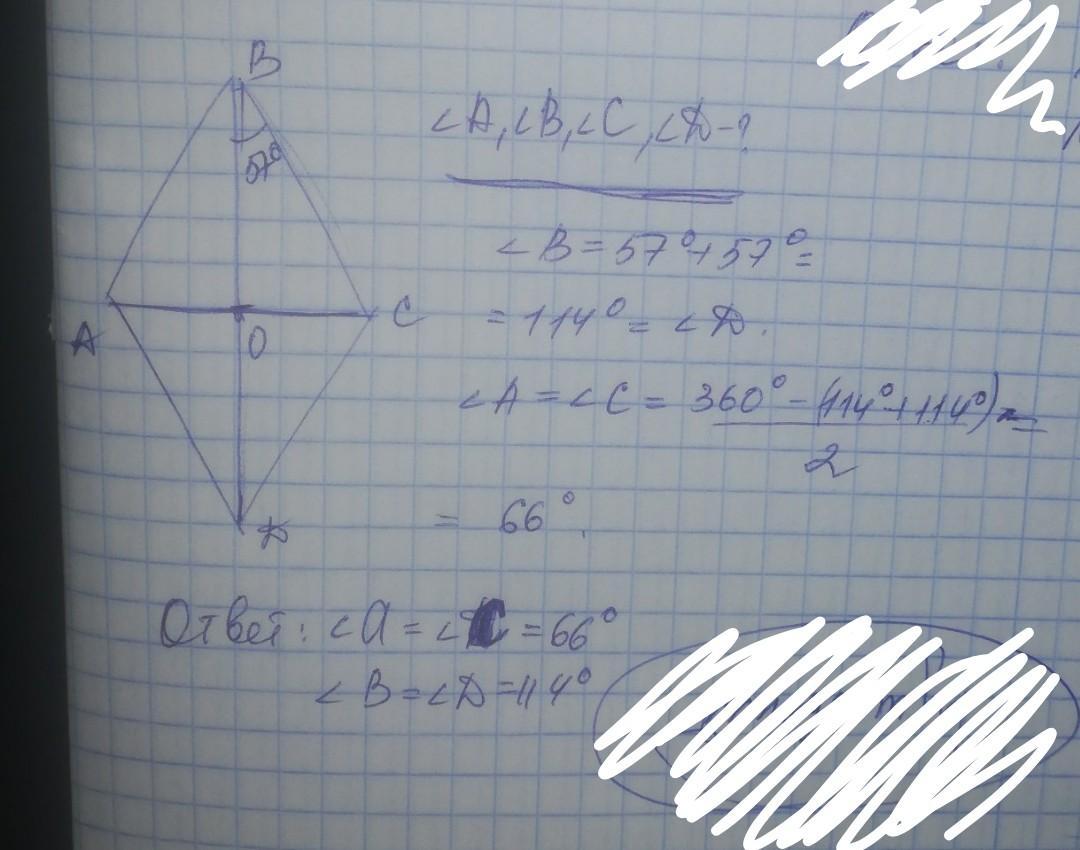 B
57°
A
O
C
D
∠A, ∠B, ∠C, ∠D-?
∠B = 57°+57° =
= 114° = ∠D.
∠A = ∠C = 360° - (114°+114°) =
2
= 66°.
Ответ: ∠A = ∠C = 66°
∠B = ∠D = 114°